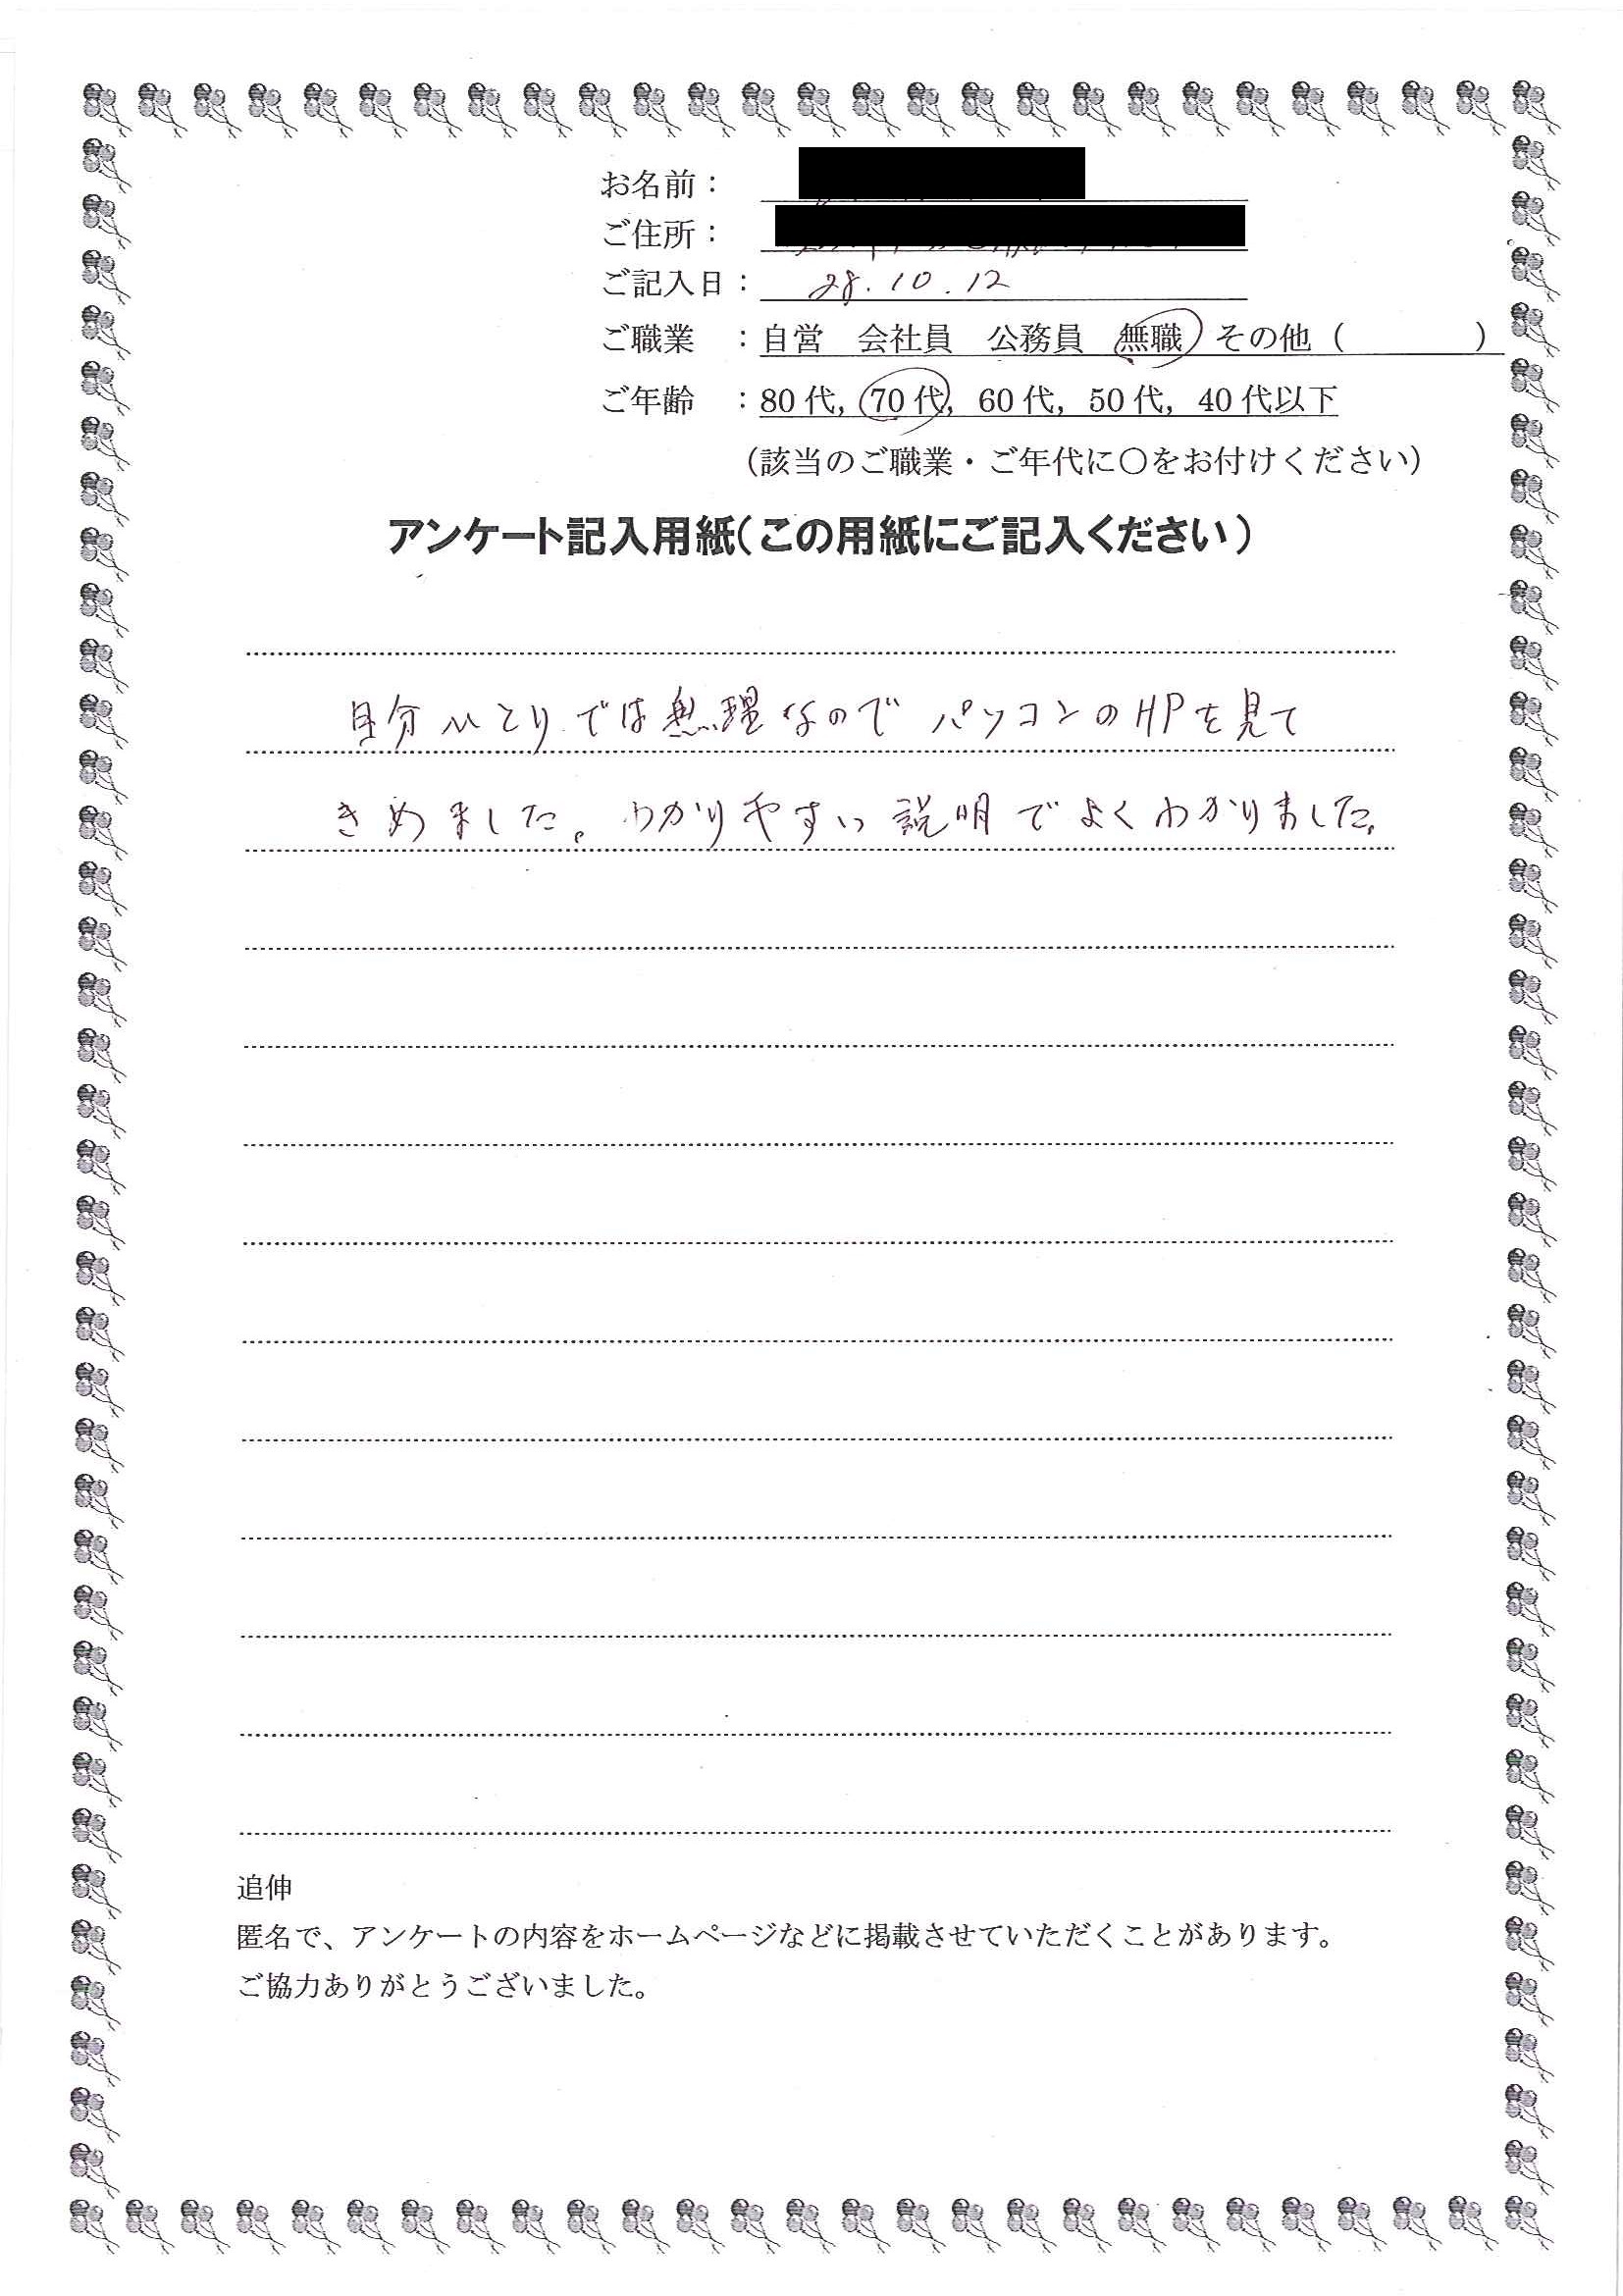 お名前：
ご住所：
ご記入日： 28.10.12
ご職業　：自営　会社員　公務員　無職　その他（　　　　）
ご年齢　：80代，70代，60代，50代，40代以下
（該当のご職業・ご年代に〇をお付けください）
アンケート記入用紙（この用紙にご記入ください）
自分ひとりでは無理なのでパソコンのHPを見て
きめました。わかりやすい説明でよくわかりました。
追伸
匿名で、アンケートの内容をホームページなどに掲載させていただくことがあります。
ご協力ありがとうございました。